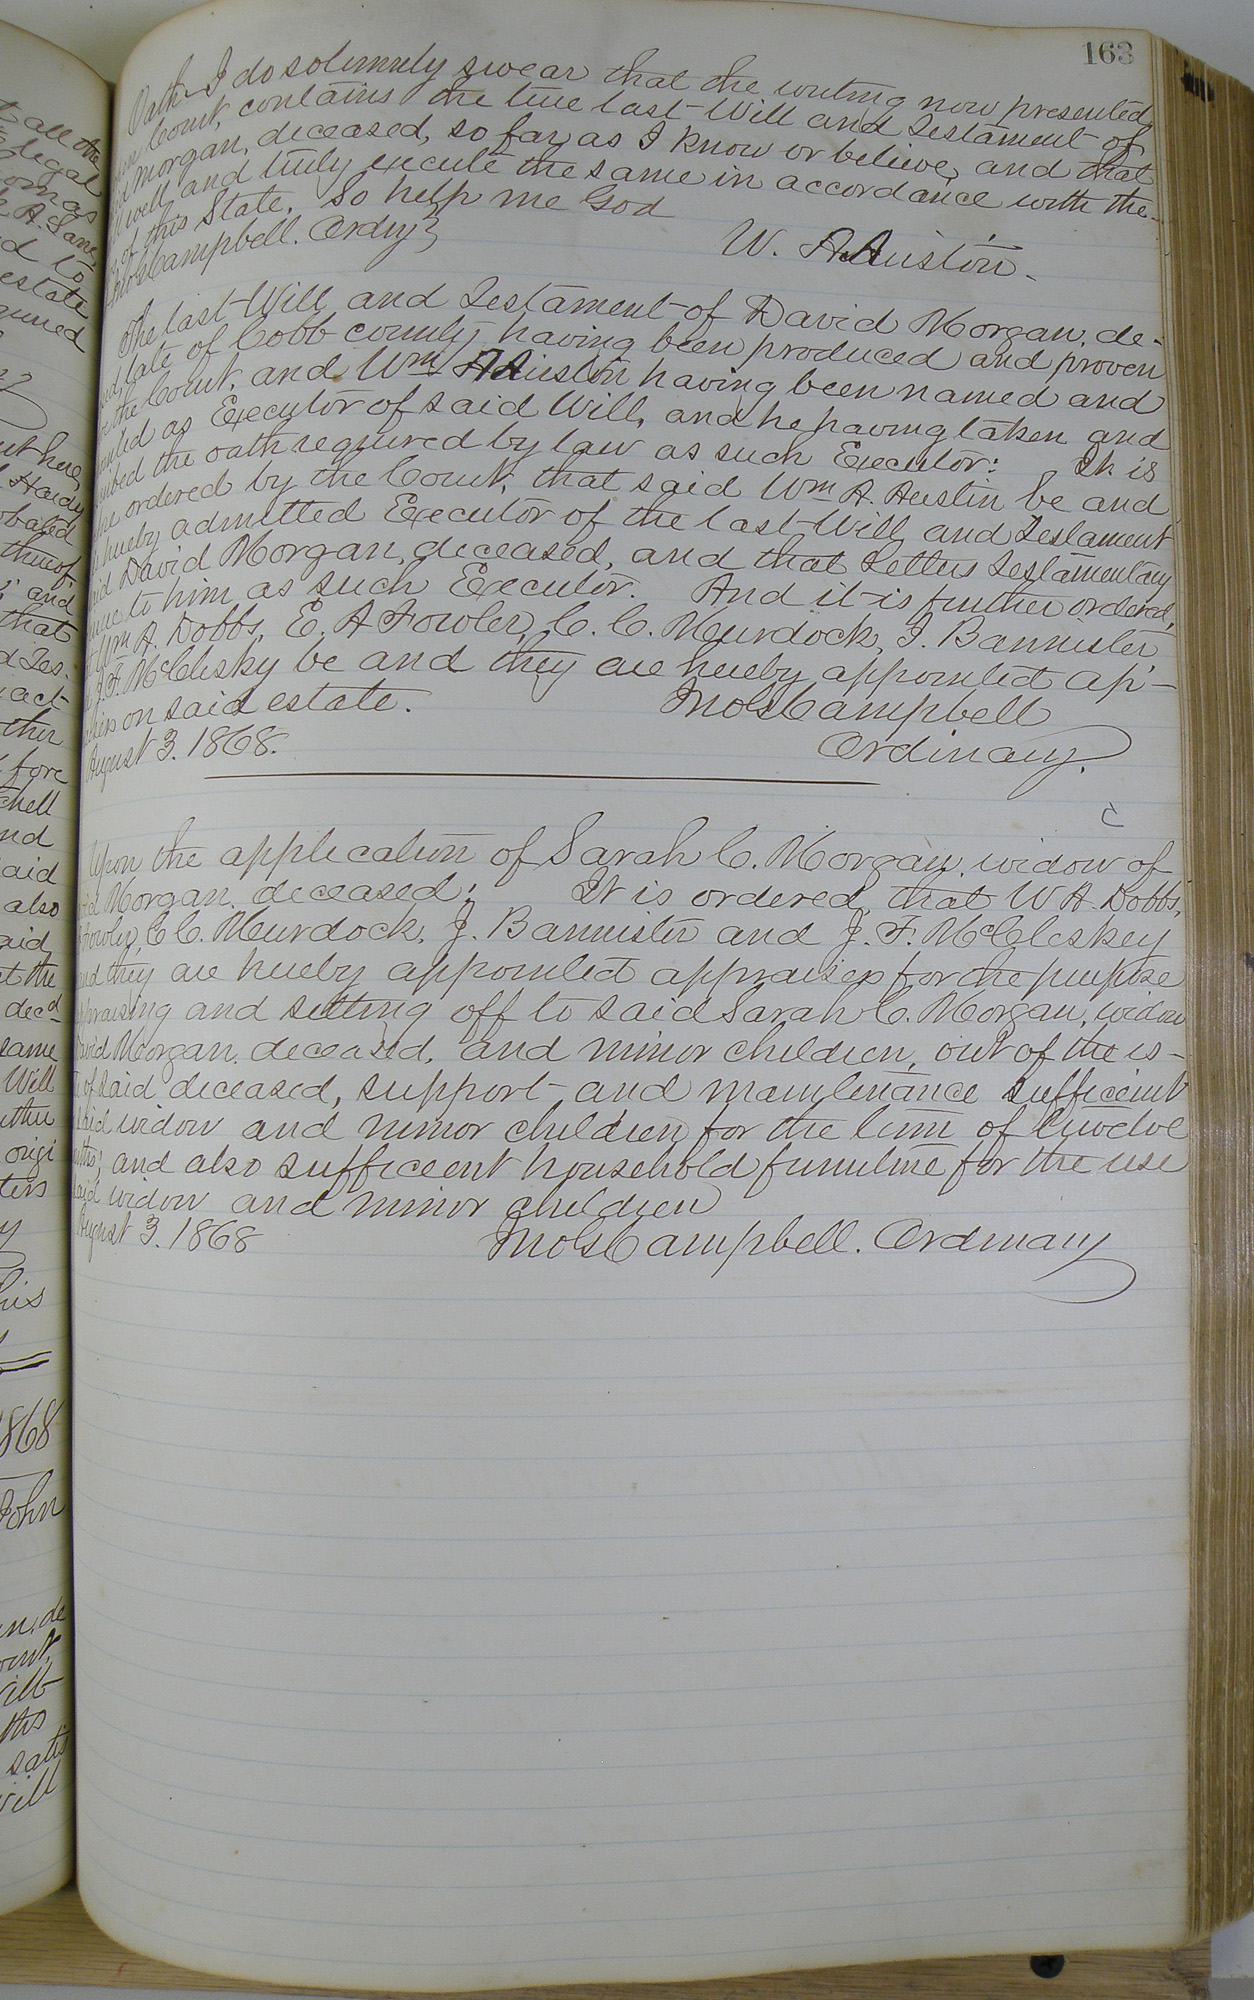 163
Oath I do solemnly swear that the writing now presented
Court, contains the true last Will and Testament of
Morgan, deceased, so far as I know or believe, and that
well and truly execute the same in accordance with the
of this State. So help me God
Campbell. Ordry W. A. Austin.
The last Will and Testament of David Morgan, de-
late of Cobb county, having been produced and proven
the Court, and Wm A Austin having been named and
as Executor of said Will, and he having taken and
the oath required by law as such Executor: It is
ordered by the Court, that said Wm A. Austin be and
hereby admitted Executor of the last Will and Testament
David Morgan, deceased, and that Letters Testamentary
to him as such Executor. And it is further ordered,
Wm A. Dobbs, E. A Fowler, C. C. Murdock, J. Bannister
J. F. McClesky be and they are hereby appointed ap-
on said estate. Jno G Campbell
August 3. 1868. Ordinary.
Upon the application of Sarah C. Morgan, widow of
Morgan, deceased; It is ordered, that W A. Dobbs,
Fowler, C C. Murdock, J. Bannister and J. F. McCleskey
and they are hereby appointed appraisers for the purpose
appraising and setting off to said Sarah C. Morgan, widow
David Morgan, deceased, and minor children, out of the es-
of said deceased, support and maintenance sufficient
said widow and minor children for the time of twelve
and also sufficient household furniture for the use
said widow and minor children
August 3. 1868 Jno G Campbell. Ordinary